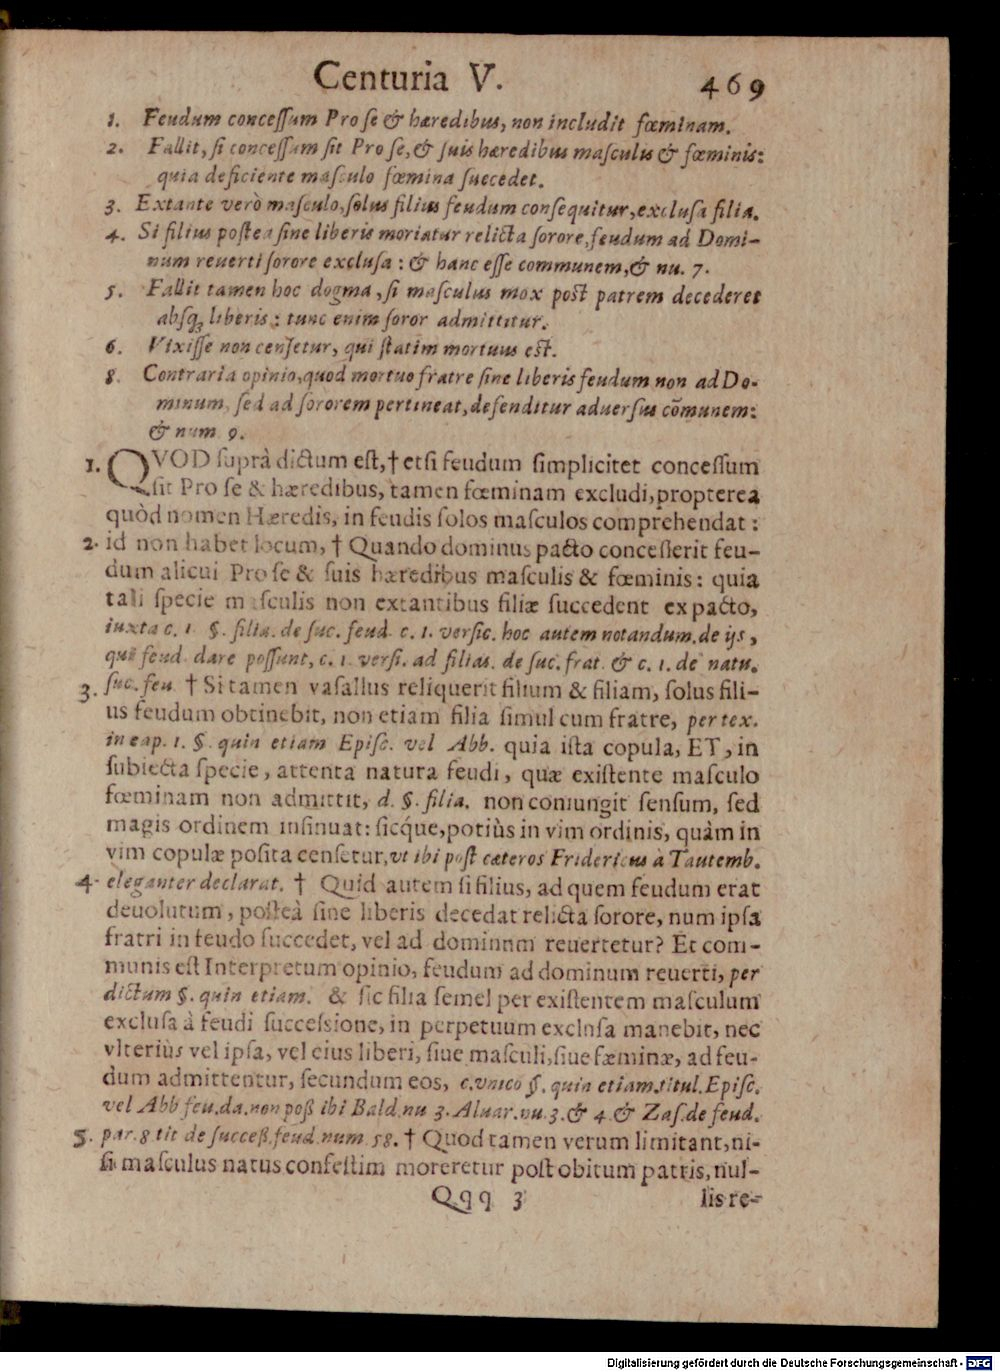 Centuria V. 469
1. Feudum conceſſum Pro ſe & hæredibus, non includit fœminam.
2. Fallit, ſi conceſſum ſit Pro ſe, & ſuis hæredibus maſculis & fœminis:
quia deficiente maſculo fœmina ſuccedet.
3. Extante verò maſculo, ſolus filius feudum conſequitur, excluſa filia.
4. Si filius poſtea ſine liberis moriatur relicta ſorore, feudum ad Domi-
num reuerti ſorore excluſa: & hanc eſſe communem, & nu. 7.
5. Fallit tamen hoc dogma, ſi maſculus mox poſt patrem decederet
abſq; liberis: tunc enim ſoror admittitur.
6. Vixiſſe non cenſetur, qui ſtatim mortuus eſt.
8. Contraria opinio, quod mortuo fratre ſine liberis feudum non ad Do-
minum, ſed ad ſororem pertineat, defenditur aduerſus cõmunem:
& num 9.
1. QVOD ſuprà dictum eſt, † etſi feudum ſimplicitet conceſſum
ſit Pro ſe & hæredibus, tamen fœminam excludi, propterea
quòd nomen Hæredis, in feudis ſolos maſculos comprehendat:
2. id non habet locum, † Quando dominus pacto conceſſerit feu-
dum alicui Pro ſe & ſuis hæredibus maſculis & fœminis: quia
tali ſpecie maſculis non extantibus filiæ ſuccedent ex pacto,
iuxta c. 1. §. filia. de ſuc. feud. c. 1. verſic. hoc autem notandum. de ijs,
qui feud. dare poſſunt, c. 1. verſi. ad filias. de ſuc. frat. & c. 1. de natu.
3. ſuc. feu. † Si tamen vaſallus reliquerit filium & filiam, ſolus fili-
us feudum obtinebit, non etiam filia ſimul cum fratre, per tex.
in eap. 1. §. quin etiam Epiſc. vel Abb. quia iſta copula, ET, in
ſubiecta ſpecie, attenta natura feudi, quæ exiſtente maſculo
fœminam non admittit, d. §. filia. non coniungit ſenſum, ſed
magis ordinem inſinuat: ſicq́ue, potiùs in vim ordinis, quàm in
vim copulæ poſita cenſetur, vt ibi poſt cæteros Fridericus à Tautemb.
4. eleganter declarat. † Quid autem ſi filius, ad quem feudum erat
deuolutum, poſteà ſine liberis decedat relicta ſorore, num ipſa
fratri in feudo ſuccedet, vel ad dominum reuertetur? Et com-
munis eſt Interpretum opinio, feudum ad dominum reuerti, per
dictum §. quin etiam. & ſic filia ſemel per exiſtentem maſculum
excluſa à feudi ſucceſsione, in perpetuum excluſa manebit, nec
vlteriùs vel ipſa, vel eius liberi, ſiue maſculi, ſiue fæminæ, ad feu-
dum admittentur, ſecundum eos, c. vnico §. quin etiam. titul. Epiſc.
vel Abb feu. da. non poß ibi Bald. nu 3. Aluar. nu. 3. & 4. & Zaſ. de feud.
5. par. 8 tit de ſucceß. feud. num. 58. † Quod tamen verum limitant, ni-
ſi maſculus natus confeſtim moreretur poſt obitum patris, nul-
Qqq 3 lis re-
Digitalisierung gefördert durch die Deutsche Forschungsgemeinschaft - DFG